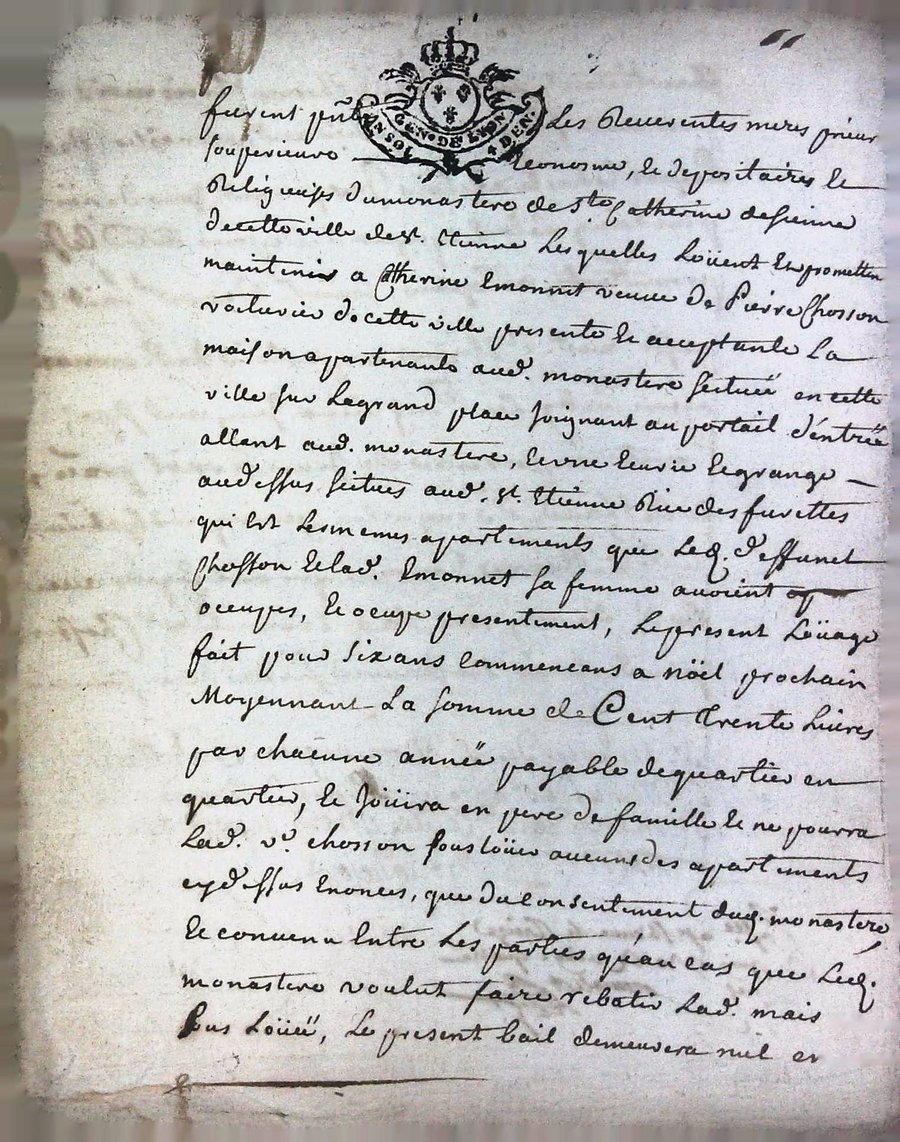 GEN. DE LYON
furent pñt Les Reuerentes meres prieur
souperieure Æconosme, et depositaires et
Religieuses du monastere de Ste. Catherine de sienne
de cette ville de St. Etienne Lesquelles Loüent Et promettent
maintenir a Catherine Emonnet veuue de Pierre Chosson
voiturier de cette ville presente Et acceptante La
maison apartenante aud. monastere scituée en cette
ville sur Le grand place joignant au portail d'éntrée
allant aud. monastere, Et vne Ecurie Et grange
au dessus scitues aud. St Etienne Rue des furettes
qui Est Les memes apartements que Led. deffunct
Chosson Et Lad. Emonnet sa femme auoient
occupes, Et ocupe presentement, Le present Loüage
fait pour Six ans Commencans a nöel prochain
Moyennant La somme de Cent Trente Liures
par chacune année payable de quartier en
quartier, Et Joüira en pere de famille Et ne pourra
Lad. ve. chosson sous loüer aucuns des apartements
cy dessus Enonces, que du Consentement dud. monastere
Et conuenu Entre Les parties qu'au cas que Led.
monastere voulut faire rebatir Lad. mais
sus Loüée, Le present bail demeurera nul et